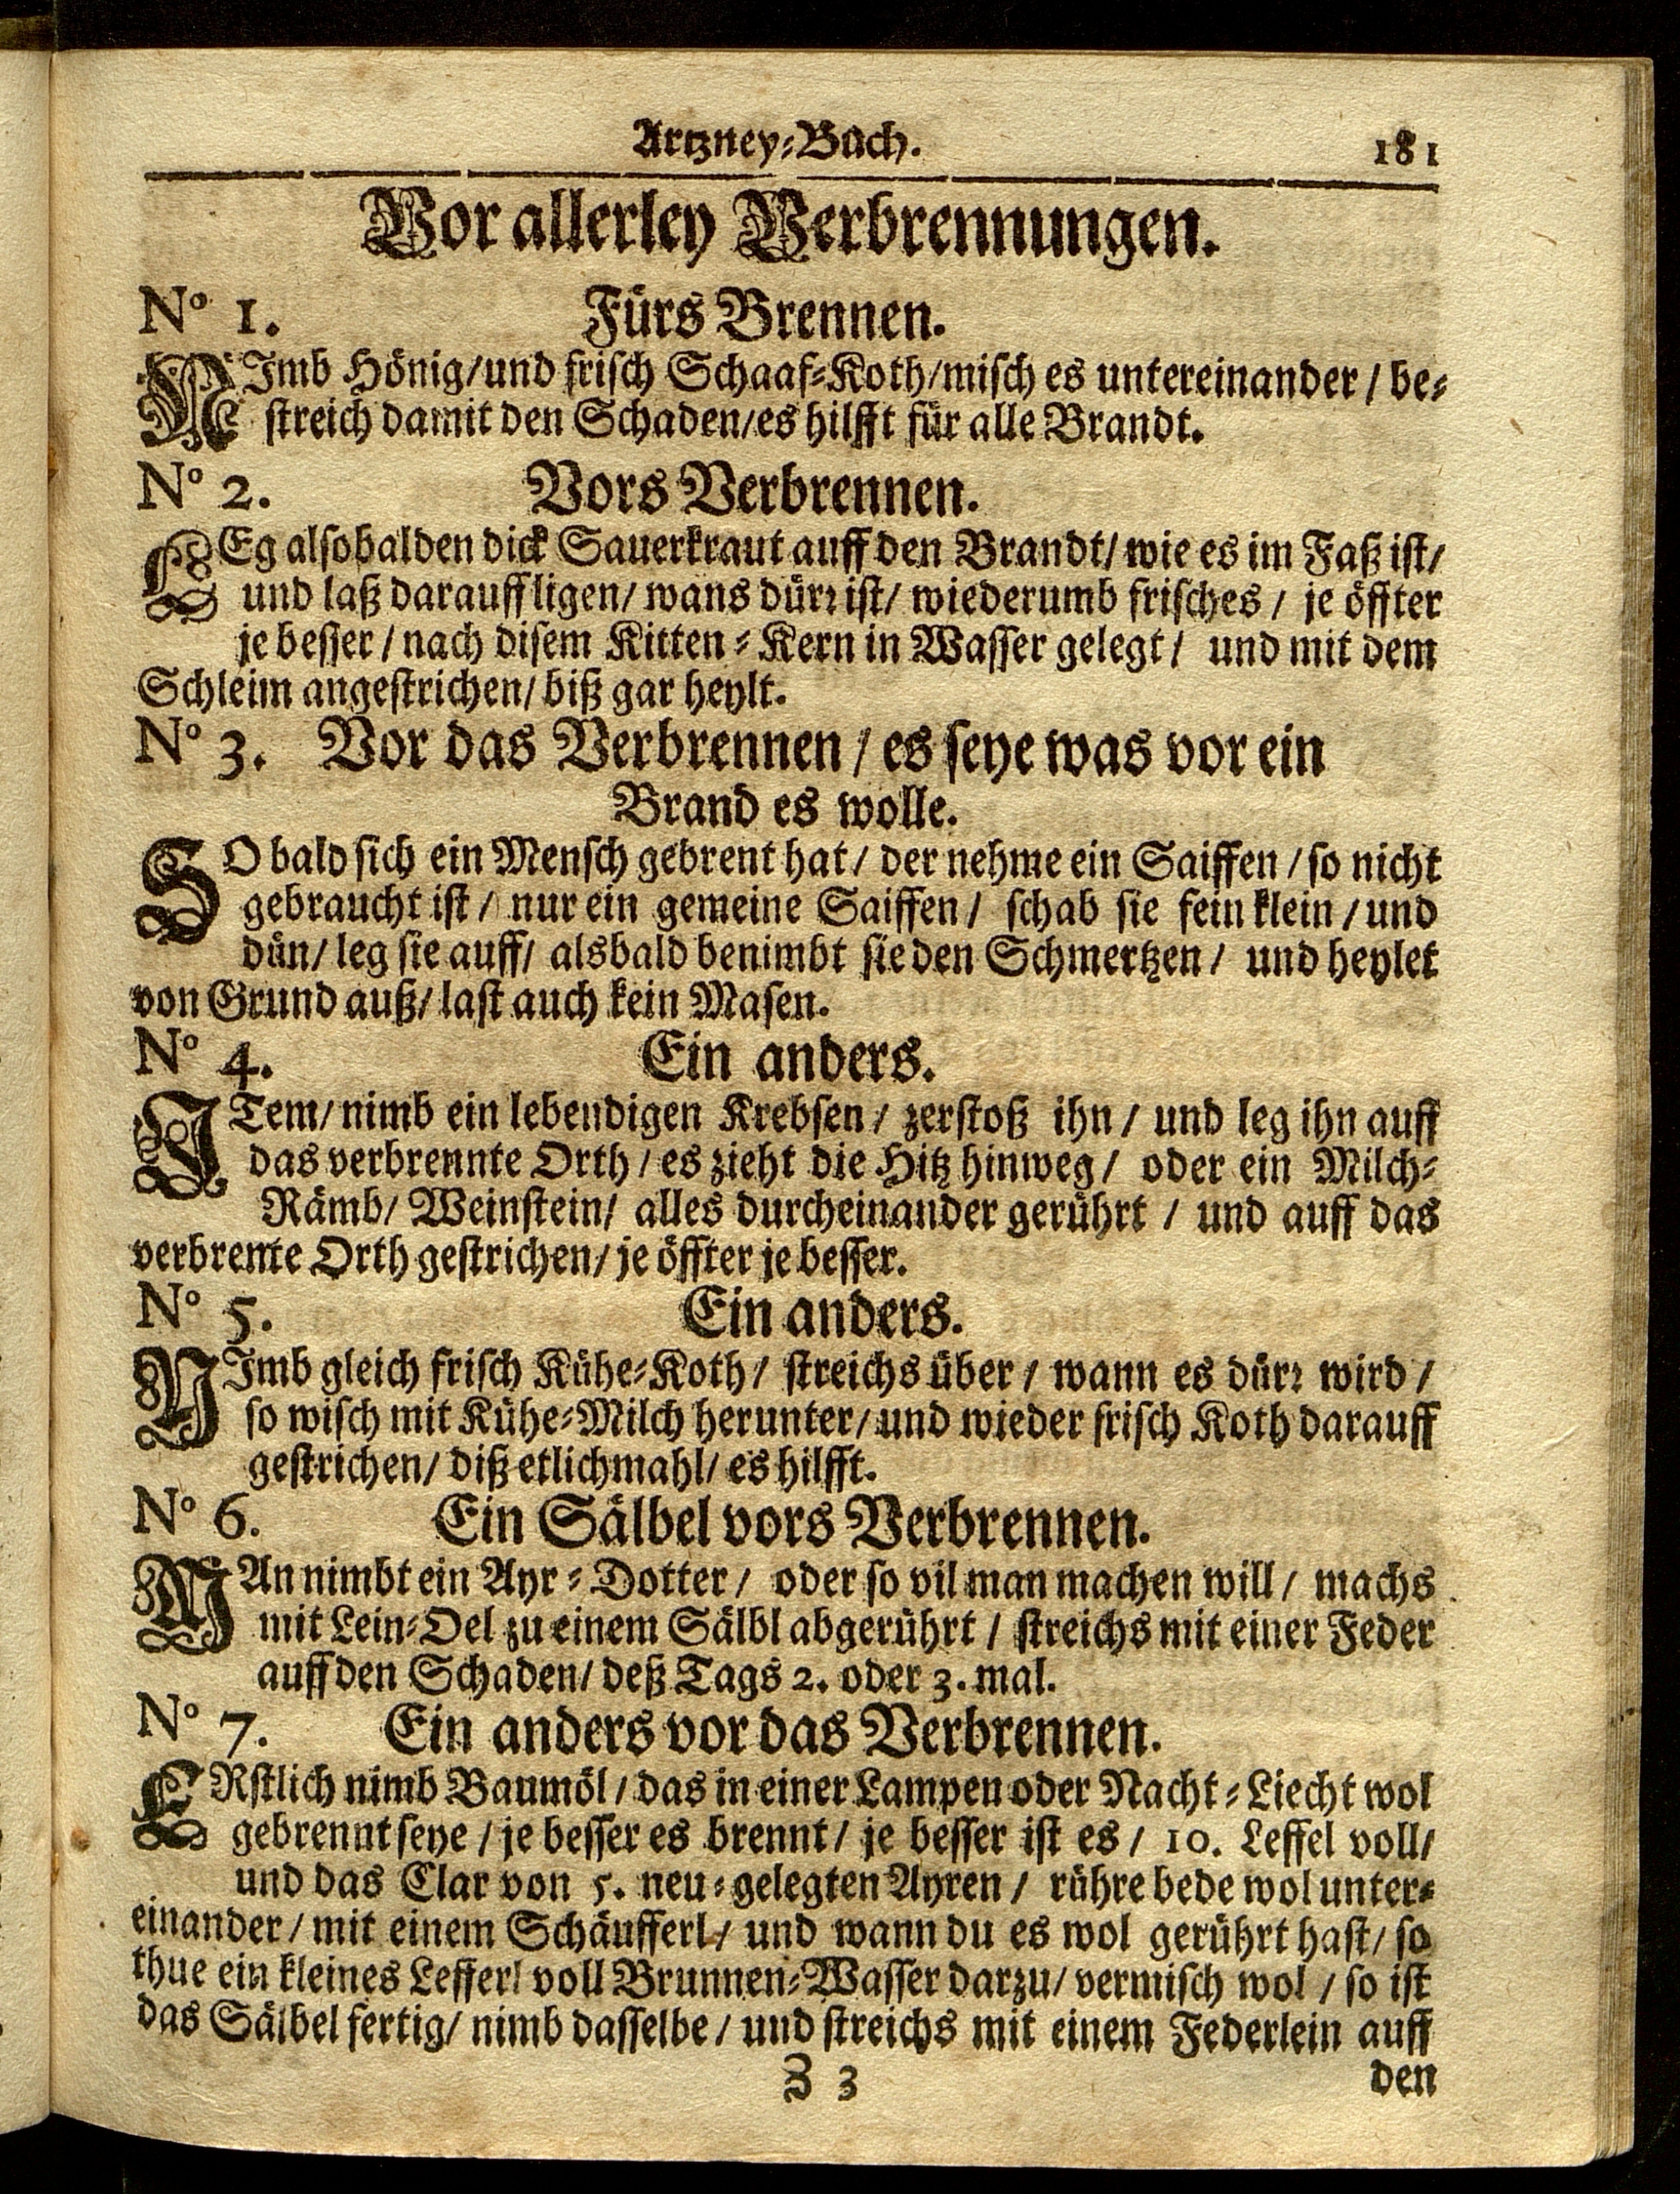 Artzney-Buch. 181
Vor allerley Verbrennungen.
No 1. Fürs Brennen.
NImb Hönig/und frisch Schaaf-Koth/misch es untereinander / be-
streich damit den Schaden/es hilfft für alle Brandt.
No 2. Vors Verbrennen.
LEg alsobalden dick Sauerkraut auff den Brandt/ wie es im Faß ist/
und laß darauff ligen/ wans dürr ist/ wiederumb frisches / je öffter
je besser / nach disem Kitten-Kern in Wasser gelegt / und mit dem
Schleim angestrichen/ biß gar heylt.
No 3. Vor das Verbrennen / es seye was vor ein
Brand es wolle.
SO bald sich ein Mensch gebrent hat / der nehme ein Saiffen / so nicht
gebraucht ist / nur ein gemeine Saiffen / schab sie fein klein / und
dün/ leg sie auff/ alsbald benimbt sie den Schmertzen / und heylet
von Grund auß/ last auch kein Masen.
No 4. Ein anders.
ITem/ nimb ein lebendigen Krebsen / zerstoß ihn / und leg ihn auff
das verbrennte Orth / es zieht die Hitz hinweg / oder ein Milch-
Rämb/ Weinstein/ alles durcheinander gerührt / und auff das
verbrente Orth gestrichen/ je öffter je besser.
No 5. Ein anders.
NImb gleich frisch Kühe-Koth / streichs über / wann es dürr wird /
so wisch mit Kühe-Milch herunter/ und wieder frisch Koth darauff
gestrichen/ diß etlichmahl/ es hilfft.
No 6. Ein Sälbel vors Verbrennen.
MAn nimbt ein Ayr-Dotter / oder so vil man machen will / machs
mit Lein-Oel zu einem Sälbl abgerührt / streichs mit einer Feder
auff den Schaden/ deß Tags 2. oder 3. mal.
No 7. Ein anders vor das Verbrennen.
ERstlich nimb Baumöl / das in einer Lampen oder Nacht-Liecht wol
gebrennt seye / je besser es brennt / je besser ist es / 10. Leffel voll/
und das Clar von 5. neu-gelegten Ayren / rühre bede wol unter-
einander / mit einem Schäufferl / und wann du es wol gerührt hast/ so
thue ein kleines Lefferl voll Brunnen-Wasser darzu/ vermisch wol / so ist
das Sälbel fertig/ nimb dasselbe / und streichs mit einem Federlein auff
Z 3 den